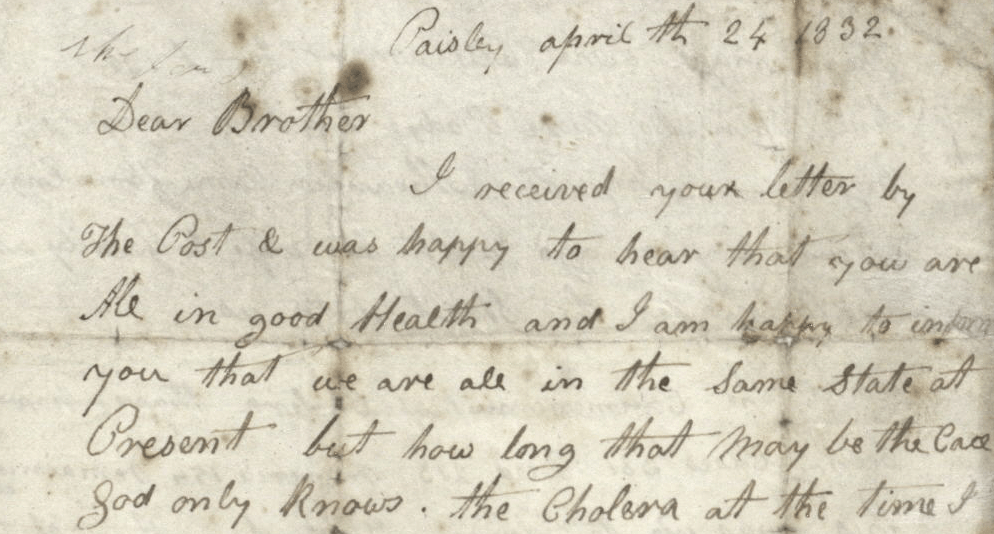 Paisley april th 24 1832
Dear Brother
I received your letter by
The Post & was happy to hear that you are
All in good Health and I am happy to inform
you that we are all in the Same State at
Present but how long that may be the Case
god only knows . the Cholera at the time I